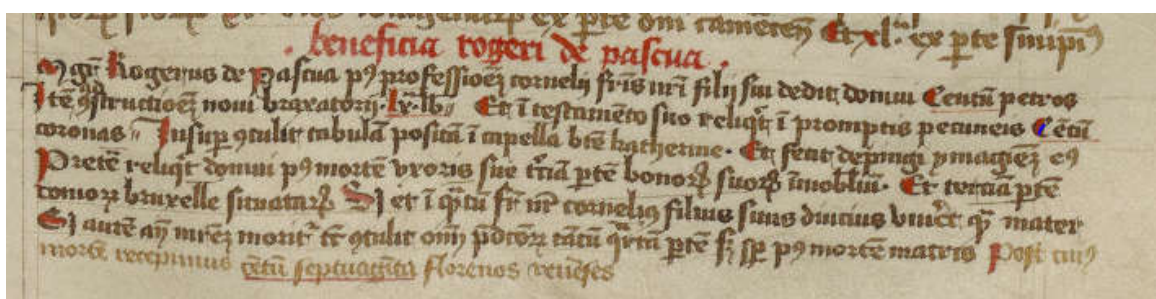 ex pte Et xl. ex pte
. beneficia rogeri de pascua .
Mgr Rogerus de Pascua p9 professioez cornelii fris nri filii sui dedit domui Centu petros
Ite 9structioez noui braxatorii . lx . lb Et i testamento suo reliqt i promptis pecuneis Cetu
coronas Insup 9tulit tabula posita i capella bte katherine . Et fecit depingi ymagiez e9
Prete reliqt domui p9 morte vxoris sue tcia pte bonorz suorz imobliu . Et tertia pte
domorz bruxelle situatarz Si et i qtu fr nr corneli9 filius suus diucius viuet qz mater
Si aute an mrez morit tc 9tulit oim pdcorz tatu qrta pte sz sp p9 morte matris Post cui9
morte recepimus cetu septuaginta florenos renēses